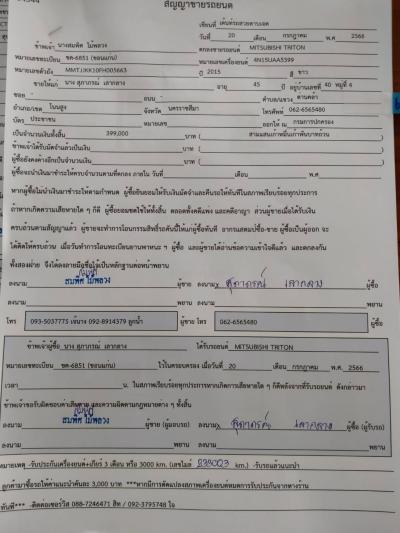 สัญญาซื้อขายรถยนต์
เขียนที่ เต็นท์รถสวยตาบเจต
วันที่ 20 เดือน กรกฎาคม พ.ศ 2566
ข้าพเจ้า นางสมพิศ ไม้พลวง ตกลงขายรถยนต์ MITSUBISHI TRITON
หมายเลขทะเบียน ขต-6851 (ขอนแก่น) หมายเลขเครื่องยนต์ 4N15UAA5399
หมายเลขตัวถัง MMTJJKK10FH005663 ปี 2015 สี ขาว
ขายให้แก่ นาง สุภาภรณ์ เลากลาง อายุ 45 ปี อยู่บ้านเลขที่ 40 หมู่ที่ 4
ซอย - ถนน - ตำบล/แขวง ด่านคล้า
อำเภอ/เขต โนนสูง จังหวัด นครราชสีมา โทรศัพท์ 062-6565480
บัตร ประชาชน หมายเลข ออกให้ ณ กรมการปกครอง
เป็นจำนวนเงินทั้งสิ้น 399,000 บาท ( สามแสนเก้าหมื่นเก้าพันบาทถ้วน )
ข้าพเจ้าได้รับมัดจำแล้วเป็นเงิน บาท ( )
ผู้ซื้อยังคงค้างอีกเป็นจำนวนเงิน บาท ( )
ผู้ซื้อจะนำเงินมาชำระให้ครบจำนวนตามที่ตกลง ภายใน วันที่ เดือน พ.ศ
หากผู้ซื้อไม่นำเงินมาชำระให้ตามกำหนด ผู้ซื้อยินยอมให้ริบเงินมัดจำและคืนรถให้ทันทีในสภาพเรียบร้อยทุกประการ
ถ้าหากเกิดความเสียหายใด ๆ ก็ดี ผู้ซื้อยอมชดใช้ให้ทั้งสิ้น ตลอดทั้งคดีแพ่ง และคดีอาญา ส่วนผู้ขายเมื่อได้รับเงิน
ครบถ้วนตามสัญญาแล้ว ผู้ขายจะทำการโอนกรรมสิทธิ์รถคันนี้ให้แก่ผู้ซื้อทันที อากรแสตมป์ซื้อ-ขาย ผู้ซื้อเป็นผู้ออก จะ
ได้คิดให้ครบถ้วน เมื่อวันทำการโอนทะเบียนยานพาหนะ ฯ ผู้ซื้อ และผู้ขายได้อ่านข้อความเข้าใจดีแล้ว และตกลงกัน
ทั้งสองฝ่าย จึงได้ลงลายมือชื่อไว้เป็นหลักฐานต่อหน้าพยาน
ลงนาม สมพิศ ไม้พลวง ผู้ขาย ลงนาม สุภาภรณ์ เลากลาง ผู้ซื้อ
ลงนาม พยาน ลงนาม พยาน
โทร 093-5037775 เจ้นาง 092-8914379 ลูกน้ำ ผู้ขาย โทร 062-6565480 ผู้ซื้อ
ข้าพเจ้าผู้ซื้อ นาง สุภาภรณ์ เลากลาง ได้รับรถยนต์ MITSUBISHI TRITON
หมายเลขทะเบียน ขต-6851 (ขอนแก่น) ไว้ในครอบครอง เมื่อวันที่ 20 เดือน กรกฎาคม พ.ศ. 2566
เวลา น. ในสภาพเรียบร้อยทุกประการหากเกิดการเสียหายใด ๆ ก็ดีหลังจากที่รับรถยนต์ ดังกล่าวมา
ข้าพเจ้าขอรับผิดชอบค่าเสียหาย และความผิดตามกฎหมายต่าง ๆ ทั้งสิ้น
ลงนาม สมพิศ ไม้พลวง ผู้ขาย (ผู้มอบรถ) ลงนาม สุภาภรณ์ เลากลาง ผู้ซื้อ (ผู้รับรถ)
ลงนาม พยาน ลงนาม พยาน
หมายเหตุ -รับประกันเครื่องยนต์+เกียร์ 3 เดือน หรือ 3000 km. (เลขไมล์ km.) -รับรถแล้วแนะนำ
ลูกค้ามาซื้อรถให้ค่าแนะนำคันละ 3,000 บาท ***หากมีการดัดแปลงสภาพเครื่องยนต์หมดการรับประกันจากทางร้าน
ทันที*** -ติดต่อเซอร์วิส 088-7246471 สิท / 092-3795748 ใจ